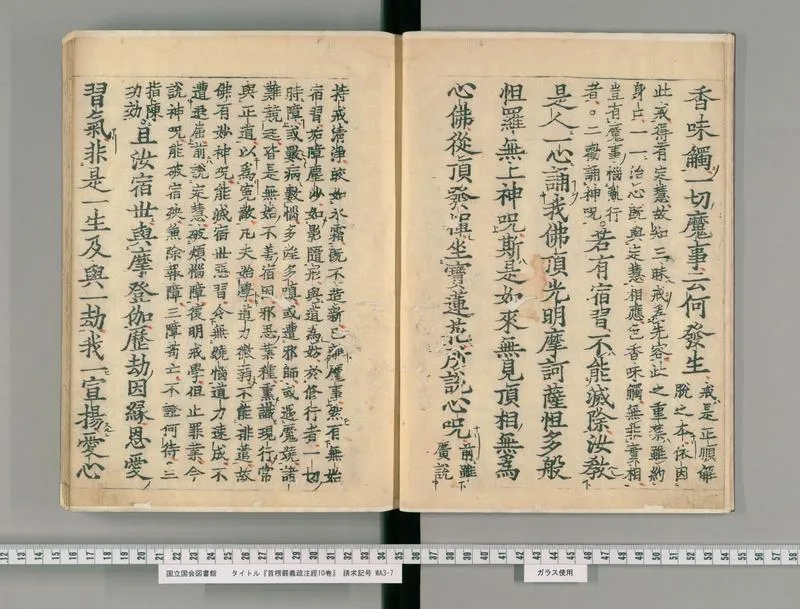 香味觸一切魔事云何發生
戒是正順解
脫之本依因
此戒得有定慧故知三昧戒爲先容止之重禁雖約
身口一一治心既與定慧相應色香味觸無非實相
豈有魔事惱亂行
者。二勸誦神呪
若有宿習不能滅除汝教
是人一心誦我佛頂光明摩訶薩怛多般
怛羅無上神呪斯是如來無見頂相無爲
心佛從頂發輝坐寶蓮花所說心呪
前雖
廣說
持戒清淨皎如氷霜既不造新已無魔事然有無始
宿習垢障塵沙如影隨形與道爲妨於修行者一切
時障或數病數惱多婬多嗔或遭邪師或遇魔嬈諸
難競逐皆是無始不善宿因邪思業種熏識現行常
與正道以爲寃敵凡夫始學道力微弱不能排遣故
佛有妙神呪能滅宿世惡習令無嬈惱道力速成不
遭退屈前說定慧破煩惱障復明戒學但止罪業今
說神呪能破宿殃兼除障三障苟亡不證何待。三
指陳
功効。
且汝宿世與摩登伽歷劫因緣恩愛
習氣非是一生及與一劫我一宣揚愛心
国立国会図書館 タイトル『首楞嚴義疏注經10巻』 請求記号 WA3-7
ガラス使用